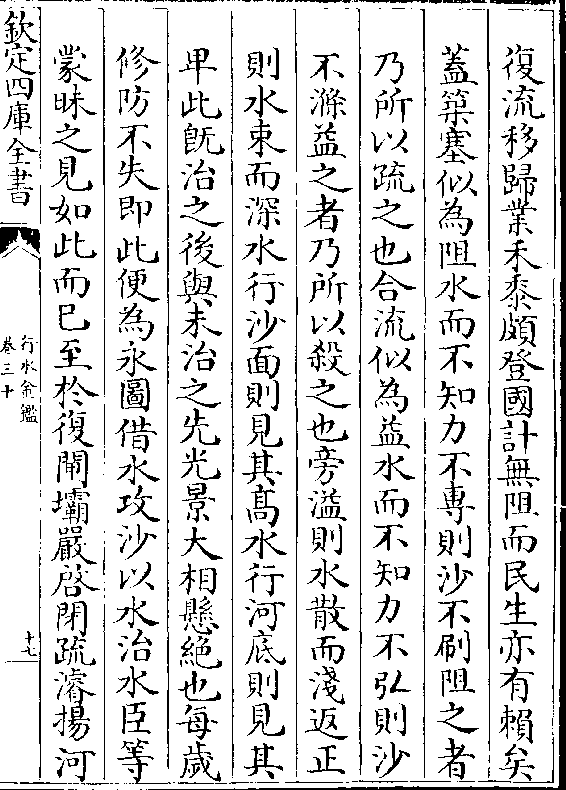 復流移歸業禾黍頗登國計無阻而民生亦有賴矣
蓋築塞似為阻水而不知力不專則沙不刷阻之者
乃所以疏之也合流似為益水而不知力不弘則沙
不滌益之者乃所以殺之也旁溢則水散而淺返正
則水束而深水行沙面則見其髙水行河底則見其
卑此既治之後與未治之先光景大相懸絶也每歲
修防不失即此便為永圖借水攻沙以水治水臣等
蒙昧之見如此而已至於復閘壩嚴啓閉疏濬揚河
欽定四庫全書
行水金鑑
卷三十
十七